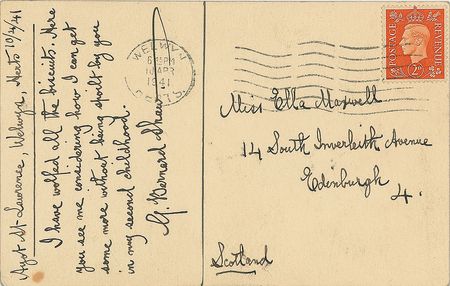 Ayot St Lawrence, Welwyn, Herts 10/4/41
I have wolfed all the biscuits. Here
you see me considering how I can get
some more without being spoilt by you
in my second childhood.
G. Bernard Shaw
WELWYN
10 APR
1941
HERTS
POSTAGE
REVENUE
2D
Miss Ella Maxwell
14 South Inverleith Avenue
Edinburgh
4.
Scotland